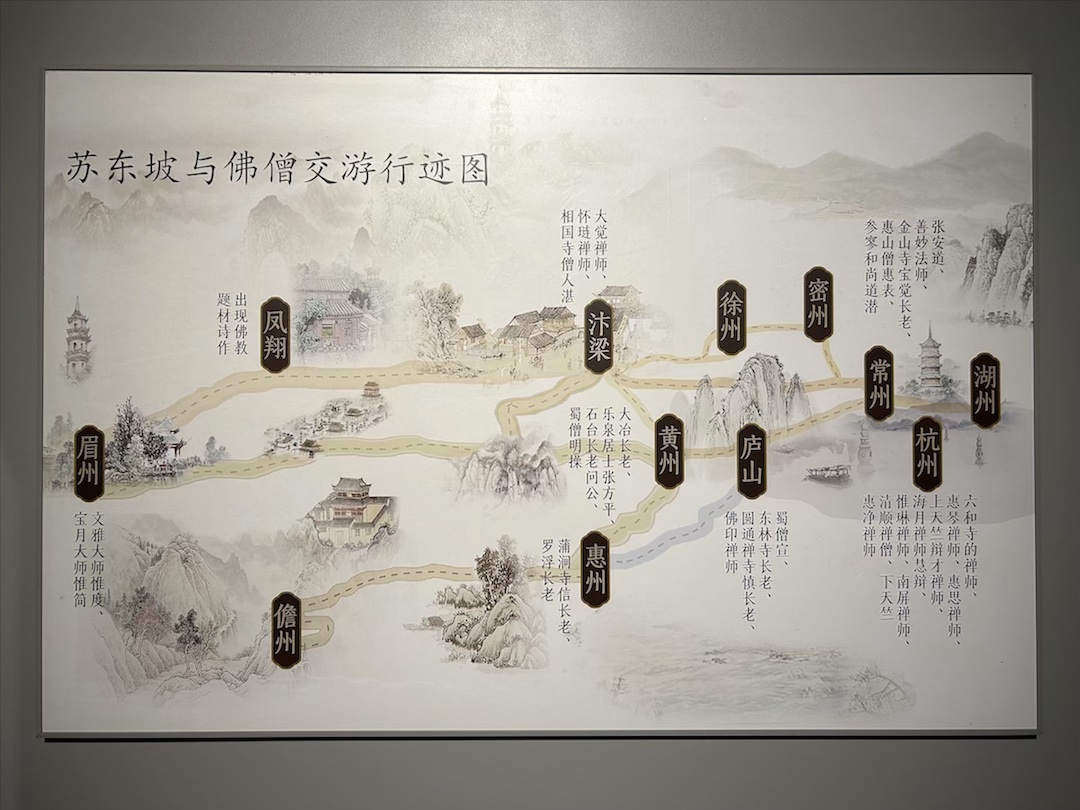 苏东坡与佛僧交游行迹图
眉州
文雅大师惟度、
宝月大师惟简
凤翔
出现佛教
题材诗作
汴梁
大觉禅师、
怀琏禅师、
相国寺僧人湛
徐州
密州
常州
张安道、
善妙法师、
金山寺宝觉长老、
惠山僧惠表、
参寥和尚道潜
湖州
杭州
六和寺的禅师、
惠琴禅师、惠思禅师、
上天竺辩才禅师、
海月禅师慧辩、
惟琳禅师、南屏禅师、
清顺禅僧、下天竺
惠净禅师
黄州
大冶长老、
乐泉居士张方平、
石台长老问公、
蜀僧明操
庐山
蜀僧宣、
东林寺长老、
圆通禅寺慎长老、
佛印禅师
惠州
蒲涧寺信长老、
罗浮长老
儋州